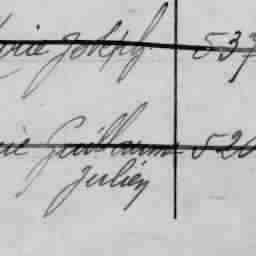 Joseph 537
Guillaume 520
Julien